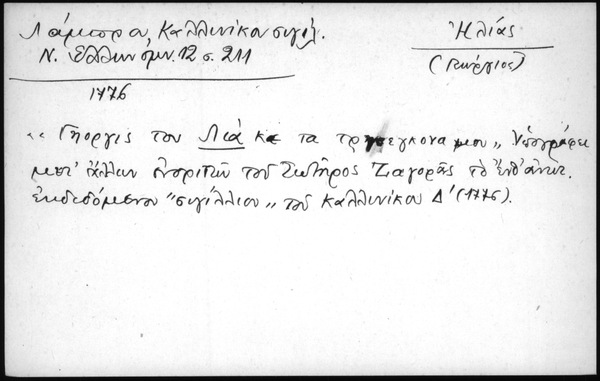 Λάμπρου, Καλλινίκου σιγίλ.
Ν. Ἑλληνομν. 12 σ. 211
1776
Ἠλίας
(Γεώργιος)
"Γηόργις του Λιά κε τα τρησεγκονα μου" Ὑπογράφει
μετ' ἄλλων ἐνοριτῶν τοῦ Σωτῆρος Ζαγορᾶς τὸ
ἐκδεδόμενον "σιγίλλιον" τοῦ Καλλινίκου Δ' (1776).